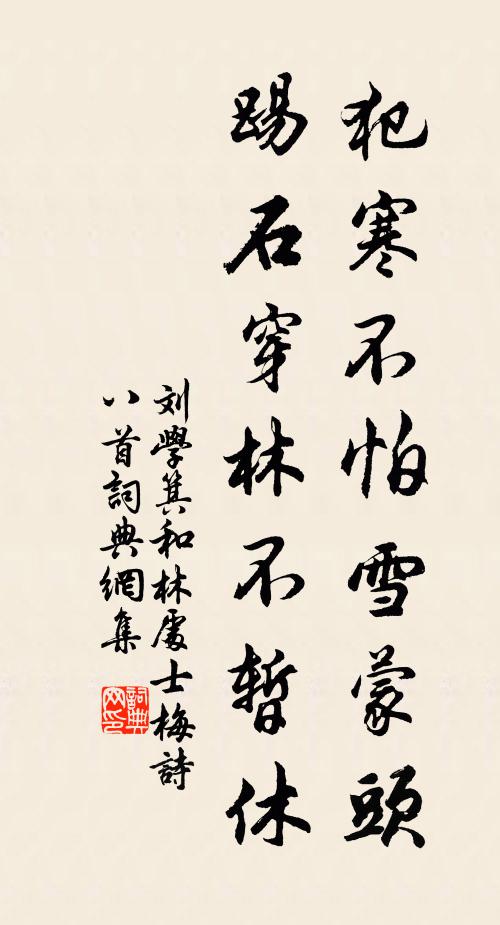 犯寒不怕雪蒙頭
踢石穿林不暫休
刘學箕和林處士梅詩
八首詞典網集
詞典網印